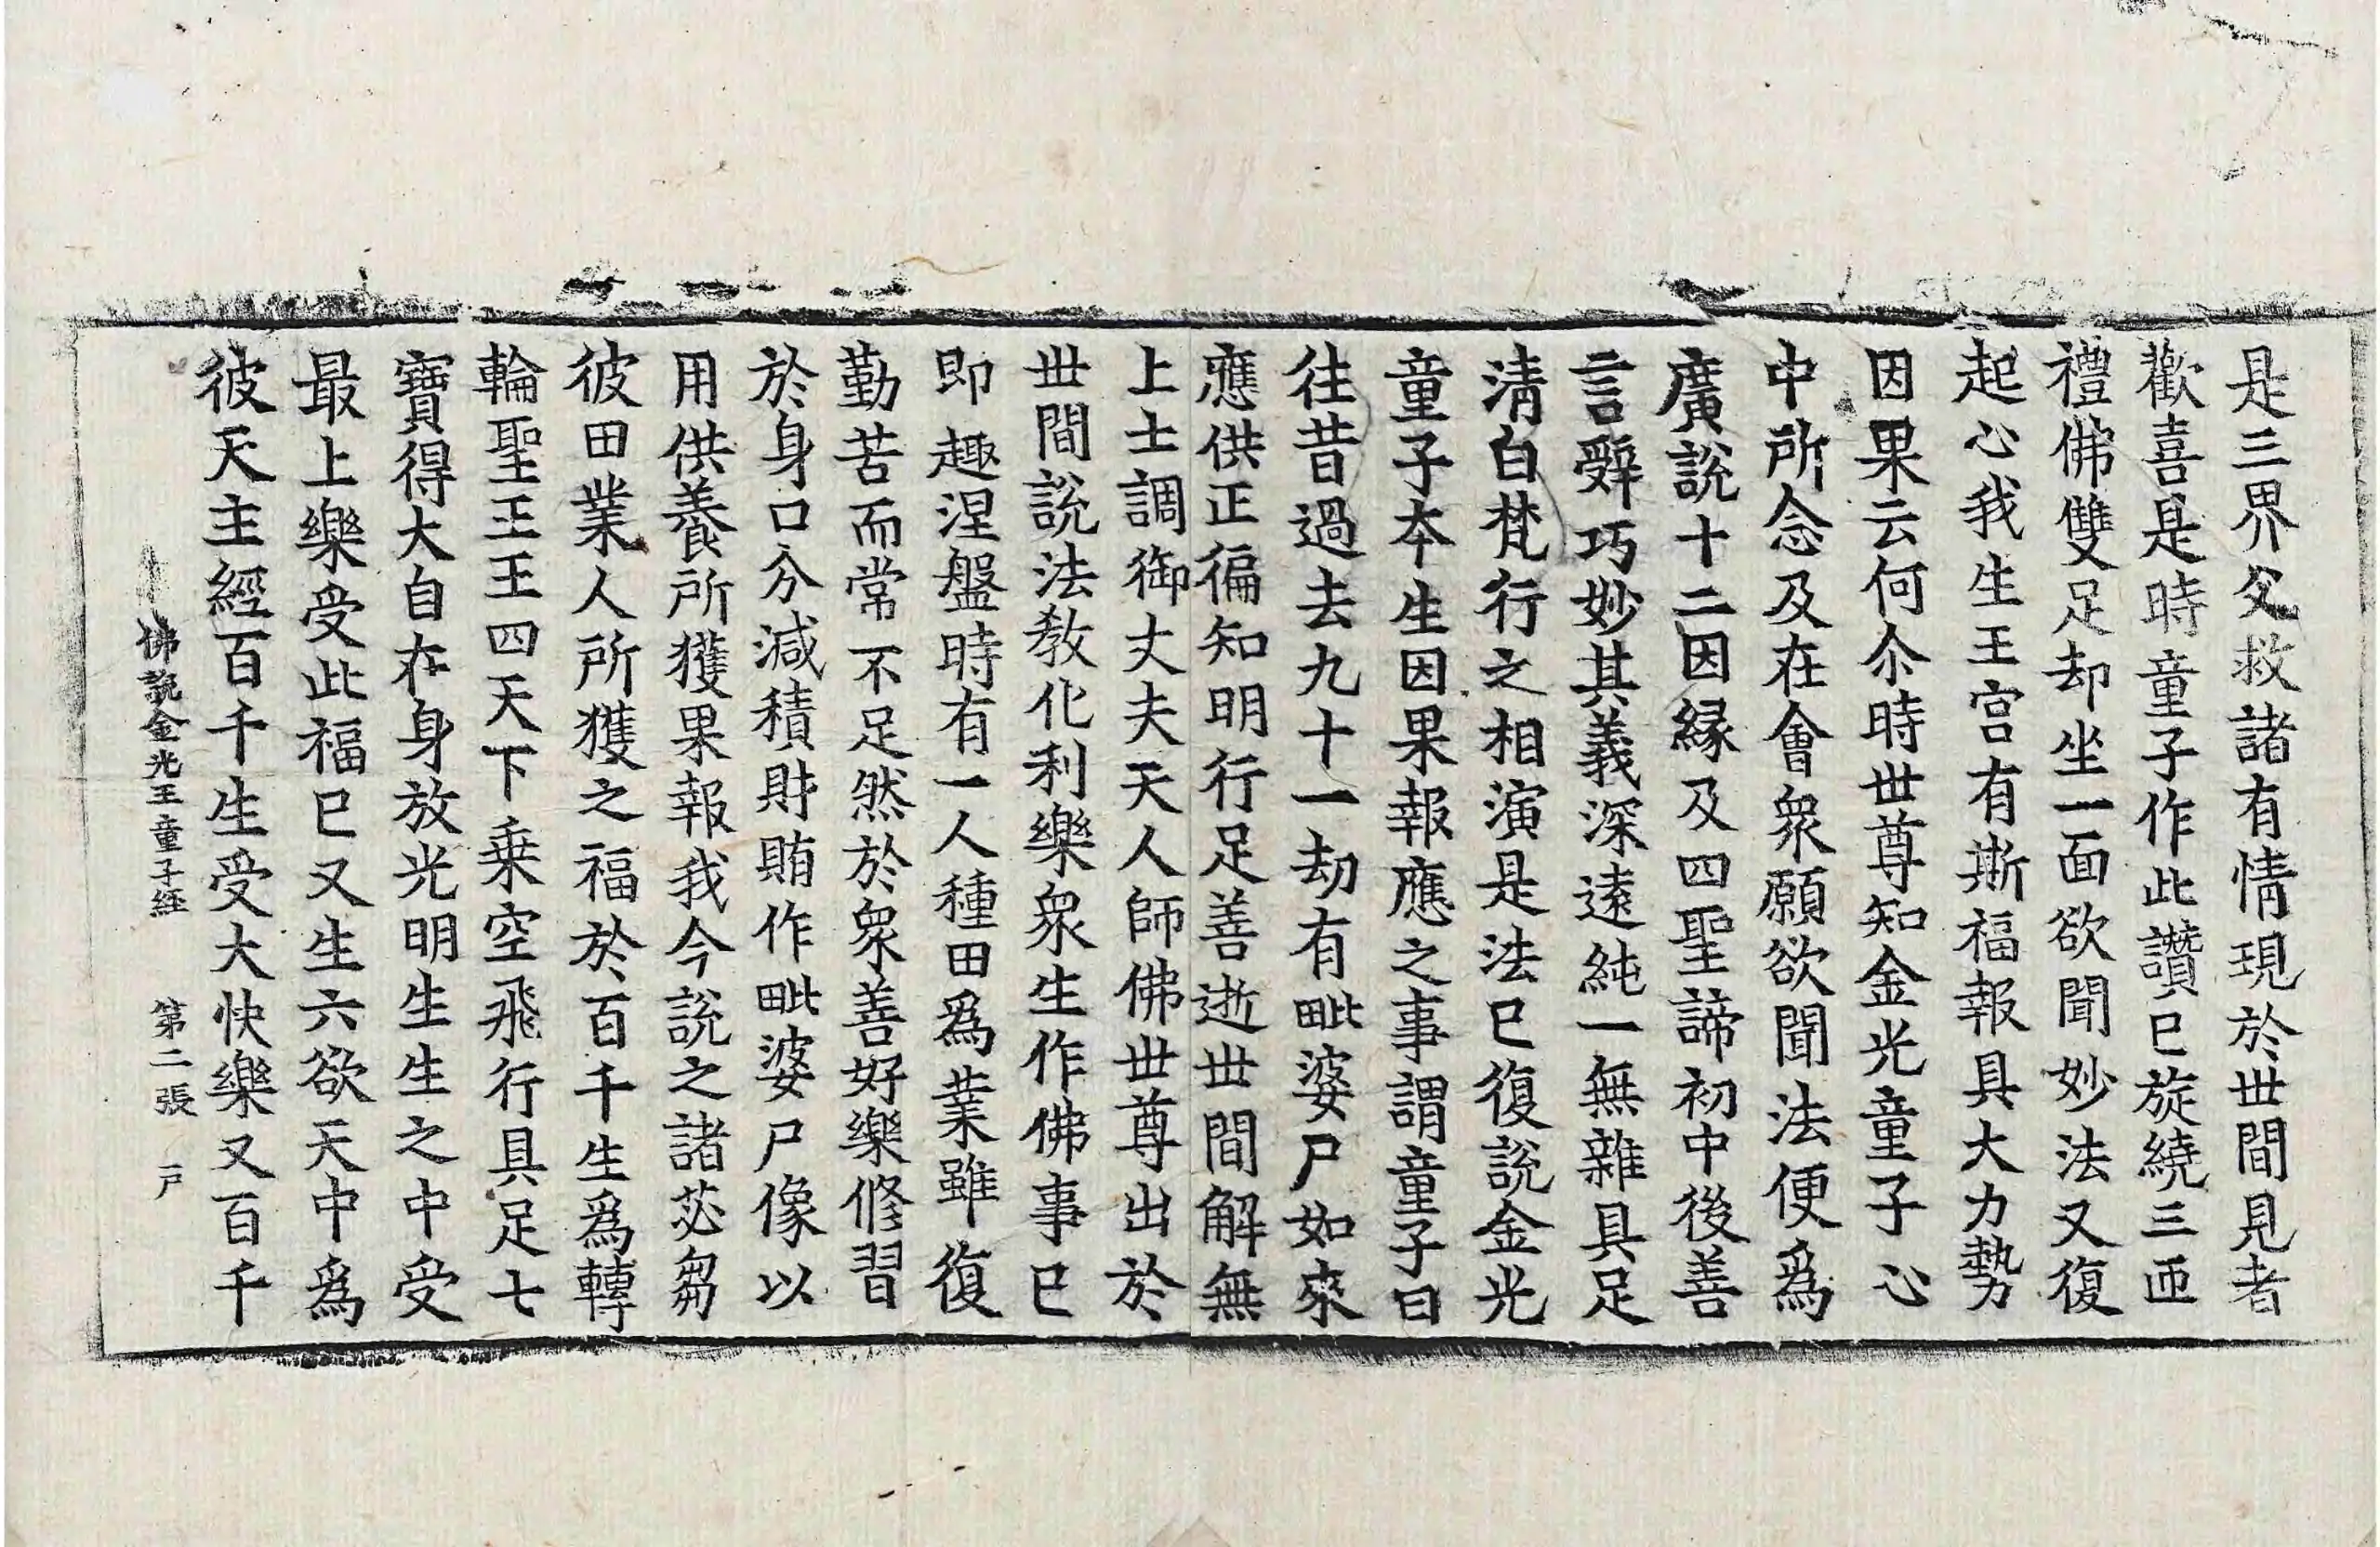 是三界父救諸有情現於世間見者
歡喜是時童子作此讚已旋繞三匝
禮佛雙足却坐一面欲聞妙法又復
起心我生王宮有斯福報具大力勢
因果云何尒時世尊知金光童子心
中所念及在會衆願欲聞法便爲
廣說十二因縁及四聖諦初中後善
言辭巧妙其義深遠純一無雜具足
清白梵行之相演是法已復說金光
童子本生因果報應之事謂童子曰
往昔過去九十一劫有毗婆尸如來
應供正徧知明行足善逝世間解無
上士調御丈夫天人師佛世尊出於
世間說法教化利樂衆生作佛事已
即趣涅盤時有一人種田爲業雖復
勤苦而常不足然於衆善好樂修習
於身口分減積財賄作毗婆尸像以
用供養所獲果報我今說之諸苾芻
彼田業人所獲之福於百千生爲轉
輪聖王王四天下乗空飛行具足七
寶得大自在身放光明生生之中受
最上樂受此福已又生六欲天中爲
彼天主經百千生受大快樂又百千
佛說金光王童子經 第二張 戶